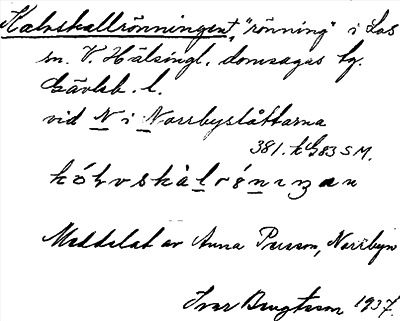 Kalvskallrönningen, "rönning" i Los
sn. V. Hälsingl. domsagas tg.
Gävleb. l.
vid N i Norrbyslåttarna
381. kG83 SM.
Meddelat av Anna Persson, Norrbyn
Ivar Bengtsson 1937.